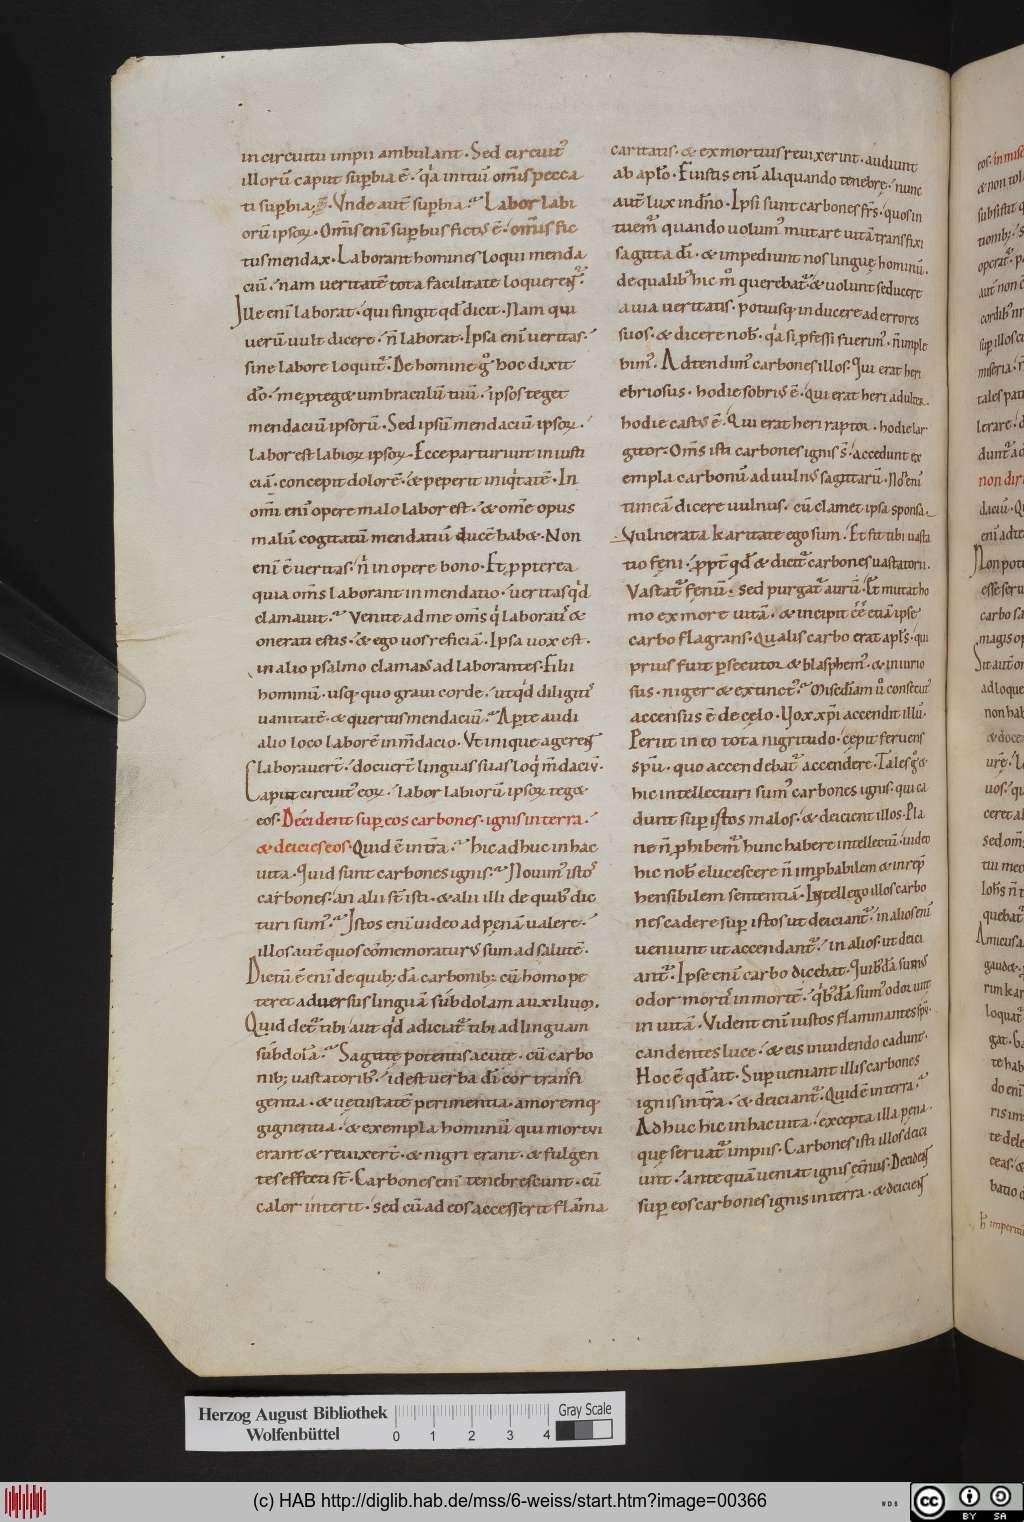 in circuitu impii ambulant. Sed circuit᾽
illorū caput suꝑbia ē. q̓a initiū om̄is pecca
ti suꝑbia. Vnde aut̄ suꝑbia? Labor labi
orū ipsoꝝ. Om̄is eni᷒ suꝑbus fict᾽ ē. om̄is fic
tus mendax. Laborant homines loqui menda
ciū. nam veritatē tota facilitate loquerent᷒.
Ille eni᷒ laborat. qui fingit qd̄ dicit. Nam qui
uerū uult dicere. n̄ laborat. Ipsa eni᷒ veritas.
sine labore loquit᷒. De homine g̊ hoc dixit
dō. me ꝓteg& umbraculū tuū. ipsos teget
mendaciū ipsorū. Sed ipsū mendaciū ipsoꝝ.
labor est labioꝝ ipsoꝝ. Ecce parturiuit iniusti
ciā. concepit dolorē. & peperit iniq̓tatē. In
om̄i eni᷒ opere malo labor est. & om̄e opus
malū cogitatū mendatiū ducē hab&. Non
eni᷒ ē veritas. n̓ in opere bono. Et ꝓpterea
quia om̄s laborant in mendatio. ueritas q̓d
clamauit? Venite ad me om̄s q̓ laborati᷒ &
onerati estis. & ego uos reficiā. Ipsa uox est.
in alio psalmo clamans ad laborantes. Filii
hominū. usq; quo graui corde. ut q̓d diligiti᷒
uanitatē. & queritis mendaciū? Aꝑte audi
alio loco laborē in m̄dacio. Vt inique agerent
laborauer̄t. docuer̄t linguas suas loq̓ m̄daciū.
Caput circuit᾽ eoꝝ. labor labiorū ipsoꝝ teg&
eos. Decident suꝑ eos carbones. ignis in terra.
& deicies eos. Quid ē in t̄ra? hic adhuc in hac
uita. Quid sunt carbones ignis? Nouim᾽ isto᷒
carbones. an alii st̄ isti. & alii illi de quib᾽ dic
turi sum᾽? Istos eni᷒ video ad penā ualere.
illos aut̄ quos cōmemoratur᾽ sum ad salutē.
Dictū ē eni᷒ de quib; dā carbonib; cū homo pe
teret aduersus linguā subdolam auxiliuꝫ.
Quid det᷒ tibi aut q̓d adiciat᷒ tibi ad linguam
subdolā? Sagitte potentis acute. cū carbo
nib; uastatorib᾽. id est verba dī cor transfi
gentia. & vetustatē perimentia. amoremq;
gignentia. & exempla hominū qui mortui
erant & reuixer̄t. & nigri erant. & fulgen
tes effecti st̄. Carbones eni᷒ tenebrescunt. cū
calor interit. sed cū ad eos accesserit flāma
caritatis. & ex mortuis reuixerint. audiunt
ab apłō. Fuistis eni᷒ aliquando tenebre. nunc
aut̄ lux in dn̄o. Ipsi sunt carbones fr̄s. quos in
tuem᷒ quando uolum᾽ mutare uitā transfixi
sagitta dī. & impediunt nos lingue hominū.
de qualib᾽ hic m̊ querebat᷒. & uolunt seducere
a uia ueritatis. potiusq; inducere ad errores
suos. & dicere nob̄. q̓a si ꝓfessi fuerim᾽. n̄ imple
bim᾽. Adtendim᾽ carbones illos. Qui erat heri
ebriosus. hodie sobri᾽ ē. qui erat heri adulter.
hodie cast᾽ ē. Qui erat heri raptor. hodie lar
gitor. Om̄s isti carbones ignis s̄. accedunt ex
empla carbonū ad uuln᾽ sagittarū. Nos eni᷒
timeā dicere uulnus. cū clamet ipsa sponsa.
Vulnerata karitate ego sum. Et fit tibi uasta
tio feni. ꝓpt̄ qd̄ & dicti᷒ carbones uastatorii.
Vastat᷒ fenū. sed purgat᷒ aurū. Et mutat ho
mo ex more uitā. & incipit ēē etiā ipse
carbo flagrans. Qualis carbo erat apłs. qui
prius fuit ꝑsecutor & blasphem᾽. & iniurio
sus. niger & extinct᾽? Misedīam u̇ consecut᾽
accensus ē de celo. Vox xp̄i accendit illū.
Periit in eo tota nigritudo. cepit feruens
sp̄u. quo accendebat᷒ accendere. Tales g̊ &
hic intellecturi sum᾽ carbones ignis. qui ca
dunt suꝑ istos malos. & deicient illos. Pla
ne n̄ ꝓhibem᷒ hunc habere intellectū. uideo
hic nob̄ elucescere n̄ imꝓbabilem & inrepꝫ
hensibilem sententiā. Intellego illos carbo
nes cadere suꝑ istos ut deiciant᷒. in alios eni᷒
ueniunt ut accendant᷒. in alios. ut deici
ant᷒. Ipse eni᷒ carbo dicebat. Quib᾽dā sum᾽
odor morti᷒ in mortē. q̓b᾽dā sum᾽ odor uitę
in uitā. Vident eni᷒ iustos flammantes sp̄u.
candentes luce. & eis inuidendo cadunt.
Hoc ē qd̄ ait. Suꝑ ueniant illis carbones
ignis in t̄ra. & deiciant᷒. Quid ē in terra?
Adhuc hic in hac uita. excepta illa pena.
que seruat᷒ impiis. Carbones isti illos deici
unt. ante quā ueniat ignis et̄nus. Decident
suꝑ eos carbones ignis in terra. & deicient
Herzog August Bibliothek
Wolfenbüttel
0 1 2 3 4
Gray Scale
(c) HAB http://diglib.hab.de/mss/6-weiss/start.htm?image=00366
cc BY SA